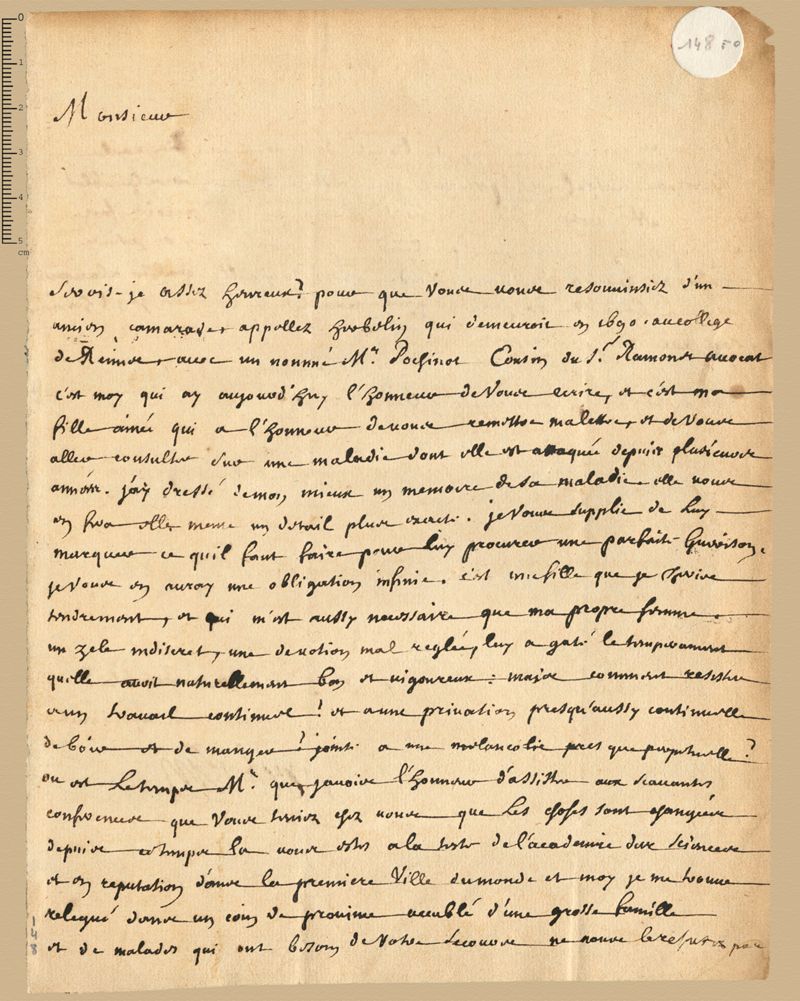 148 50
Monsieur
Serois-je assez heureux? pour que Vous vous resouvinsiez d'un
ancien camarade, appellez hrebelin qui demeuroit en 1690. au college
de Reims, avec un nommé Mr. Pochinot Cousin du Sr. Ramonet avocat
c'est moy qui ay aujourd'huy l'honneur de Vous ecrire, et c'est ma
fille ainée qui a l'honneur de vous remettre ma lettre, et de Vous
aller consulter sur une maladie dont elle est attaquée depuis plusieurs
années. j'ay dressé de mon mieux un memoire de sa maladie. elle vous
en fera elle meme un detail plus exact. je Vous supplie de luy
marquer ce quil faut faire pour luy procurer une parfaite Guerison.
je Vous en auray une obligation infinie. c'est une fille que je cheris
tendrement, et qui m'est aussy necessaire que ma propre femme.
un zele indiscret, une devotion mal reglée, luy a gaté le temperament
quelle avoit naturellement bon et vigoureux: mais comment resister
a un travail continuel! et a une privation presqu'aussy continuelle
de boire et de manger? joint a une melancolie presque perpetuelle?
ou est le temps Mr. que j'avois l'honneur d'assister aux scavantes
conferences que Vous teniez chez vous que les choses sont changées
depuis ce temps la vous estes a la teste de l'academie des Sciences
et en reputation dans la premiere Ville du monde et moy je me trouve
relegué dans un coin de province accablé d'une grosse famille
et de malades qui ont besoin de Votre secours ne nous le refusez pas
148
0
1
2
3
4
5
cm